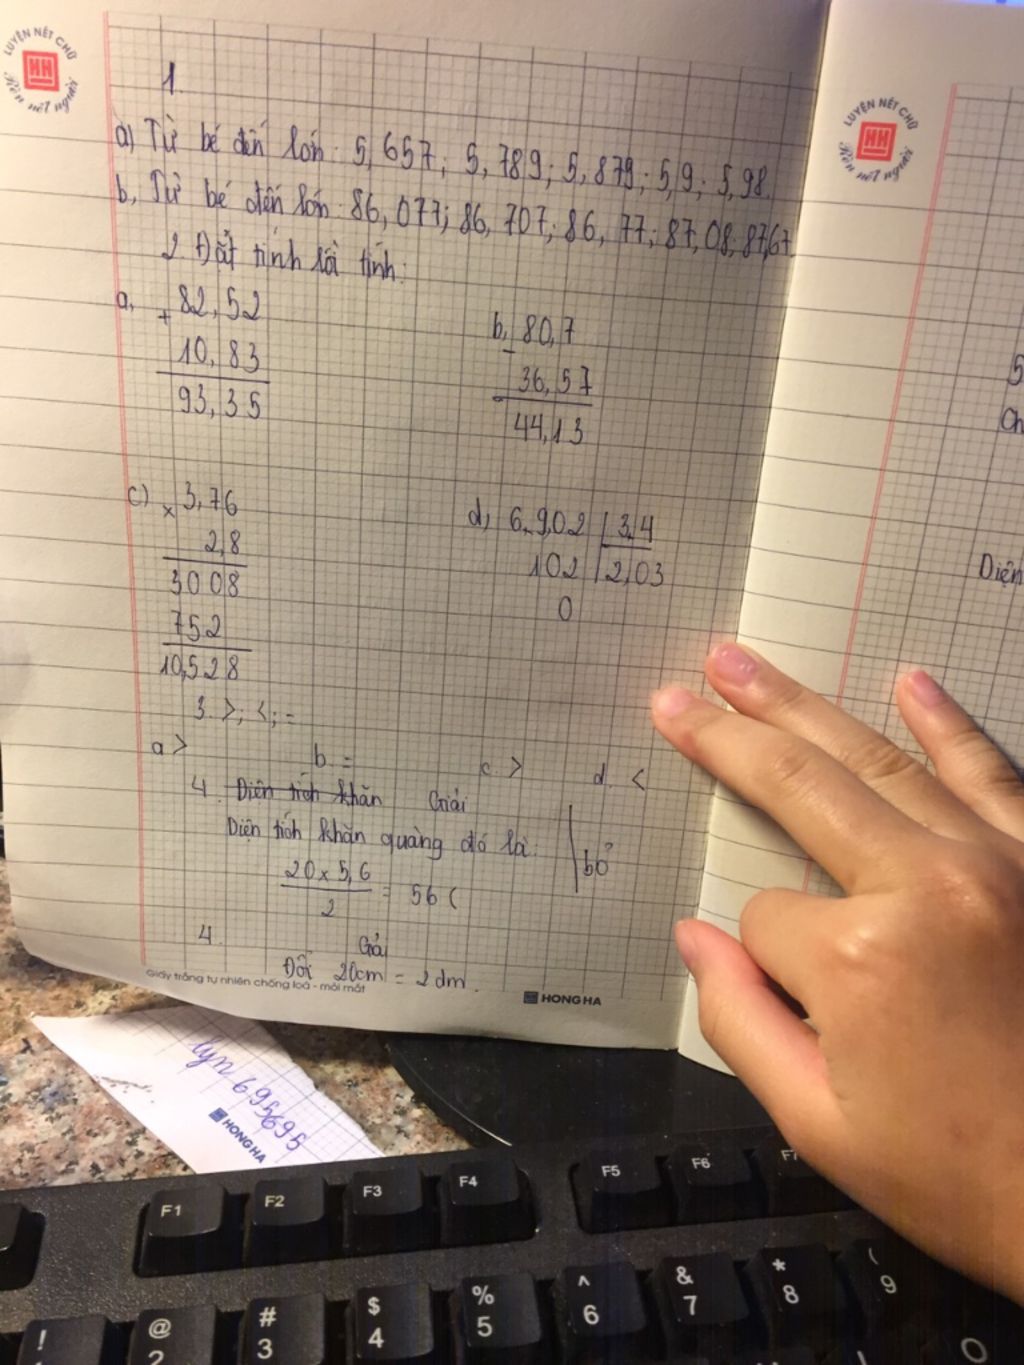 LUYỆN NÉT CHỮ
HH
Rèn nết người
LUYỆN NÉT CHỮ
HH
Rèn nết người
1.
a) Từ bé đến lớn: 5,657; 5,789; 5,879; 5,9; 5,98.
b, Từ bé đến lớn: 86,077; 86,707; 86,77; 87,08; 87,67.
2. Đặt tính rồi tính:
a, + 82,52
10,83
93,35
b, - 80,7
36,57
44,13
c) x 3,76
2,8
3008
752
10,528
d, 6,9,02 3,4
102 2,03
0
3. >; <; =
a > b. = c. > d. <
4. Diện tích khăn Giải
Diện tích khăn quàng đó là:
bỏ
20 x 5,6
2
= 56 (
4. Giải
Đổi 20cm = 2dm.
Giấy trắng tự nhiên chống loá - mỏi mắt
HONG HA
5
Ch
Diện
lyn 695695
HONG HA
F1 F2 F3 F4 F5 F6 F7
! @ 2 # 3 $ 4 % 5 ^ 6 & 7 * 8 ( 9
O